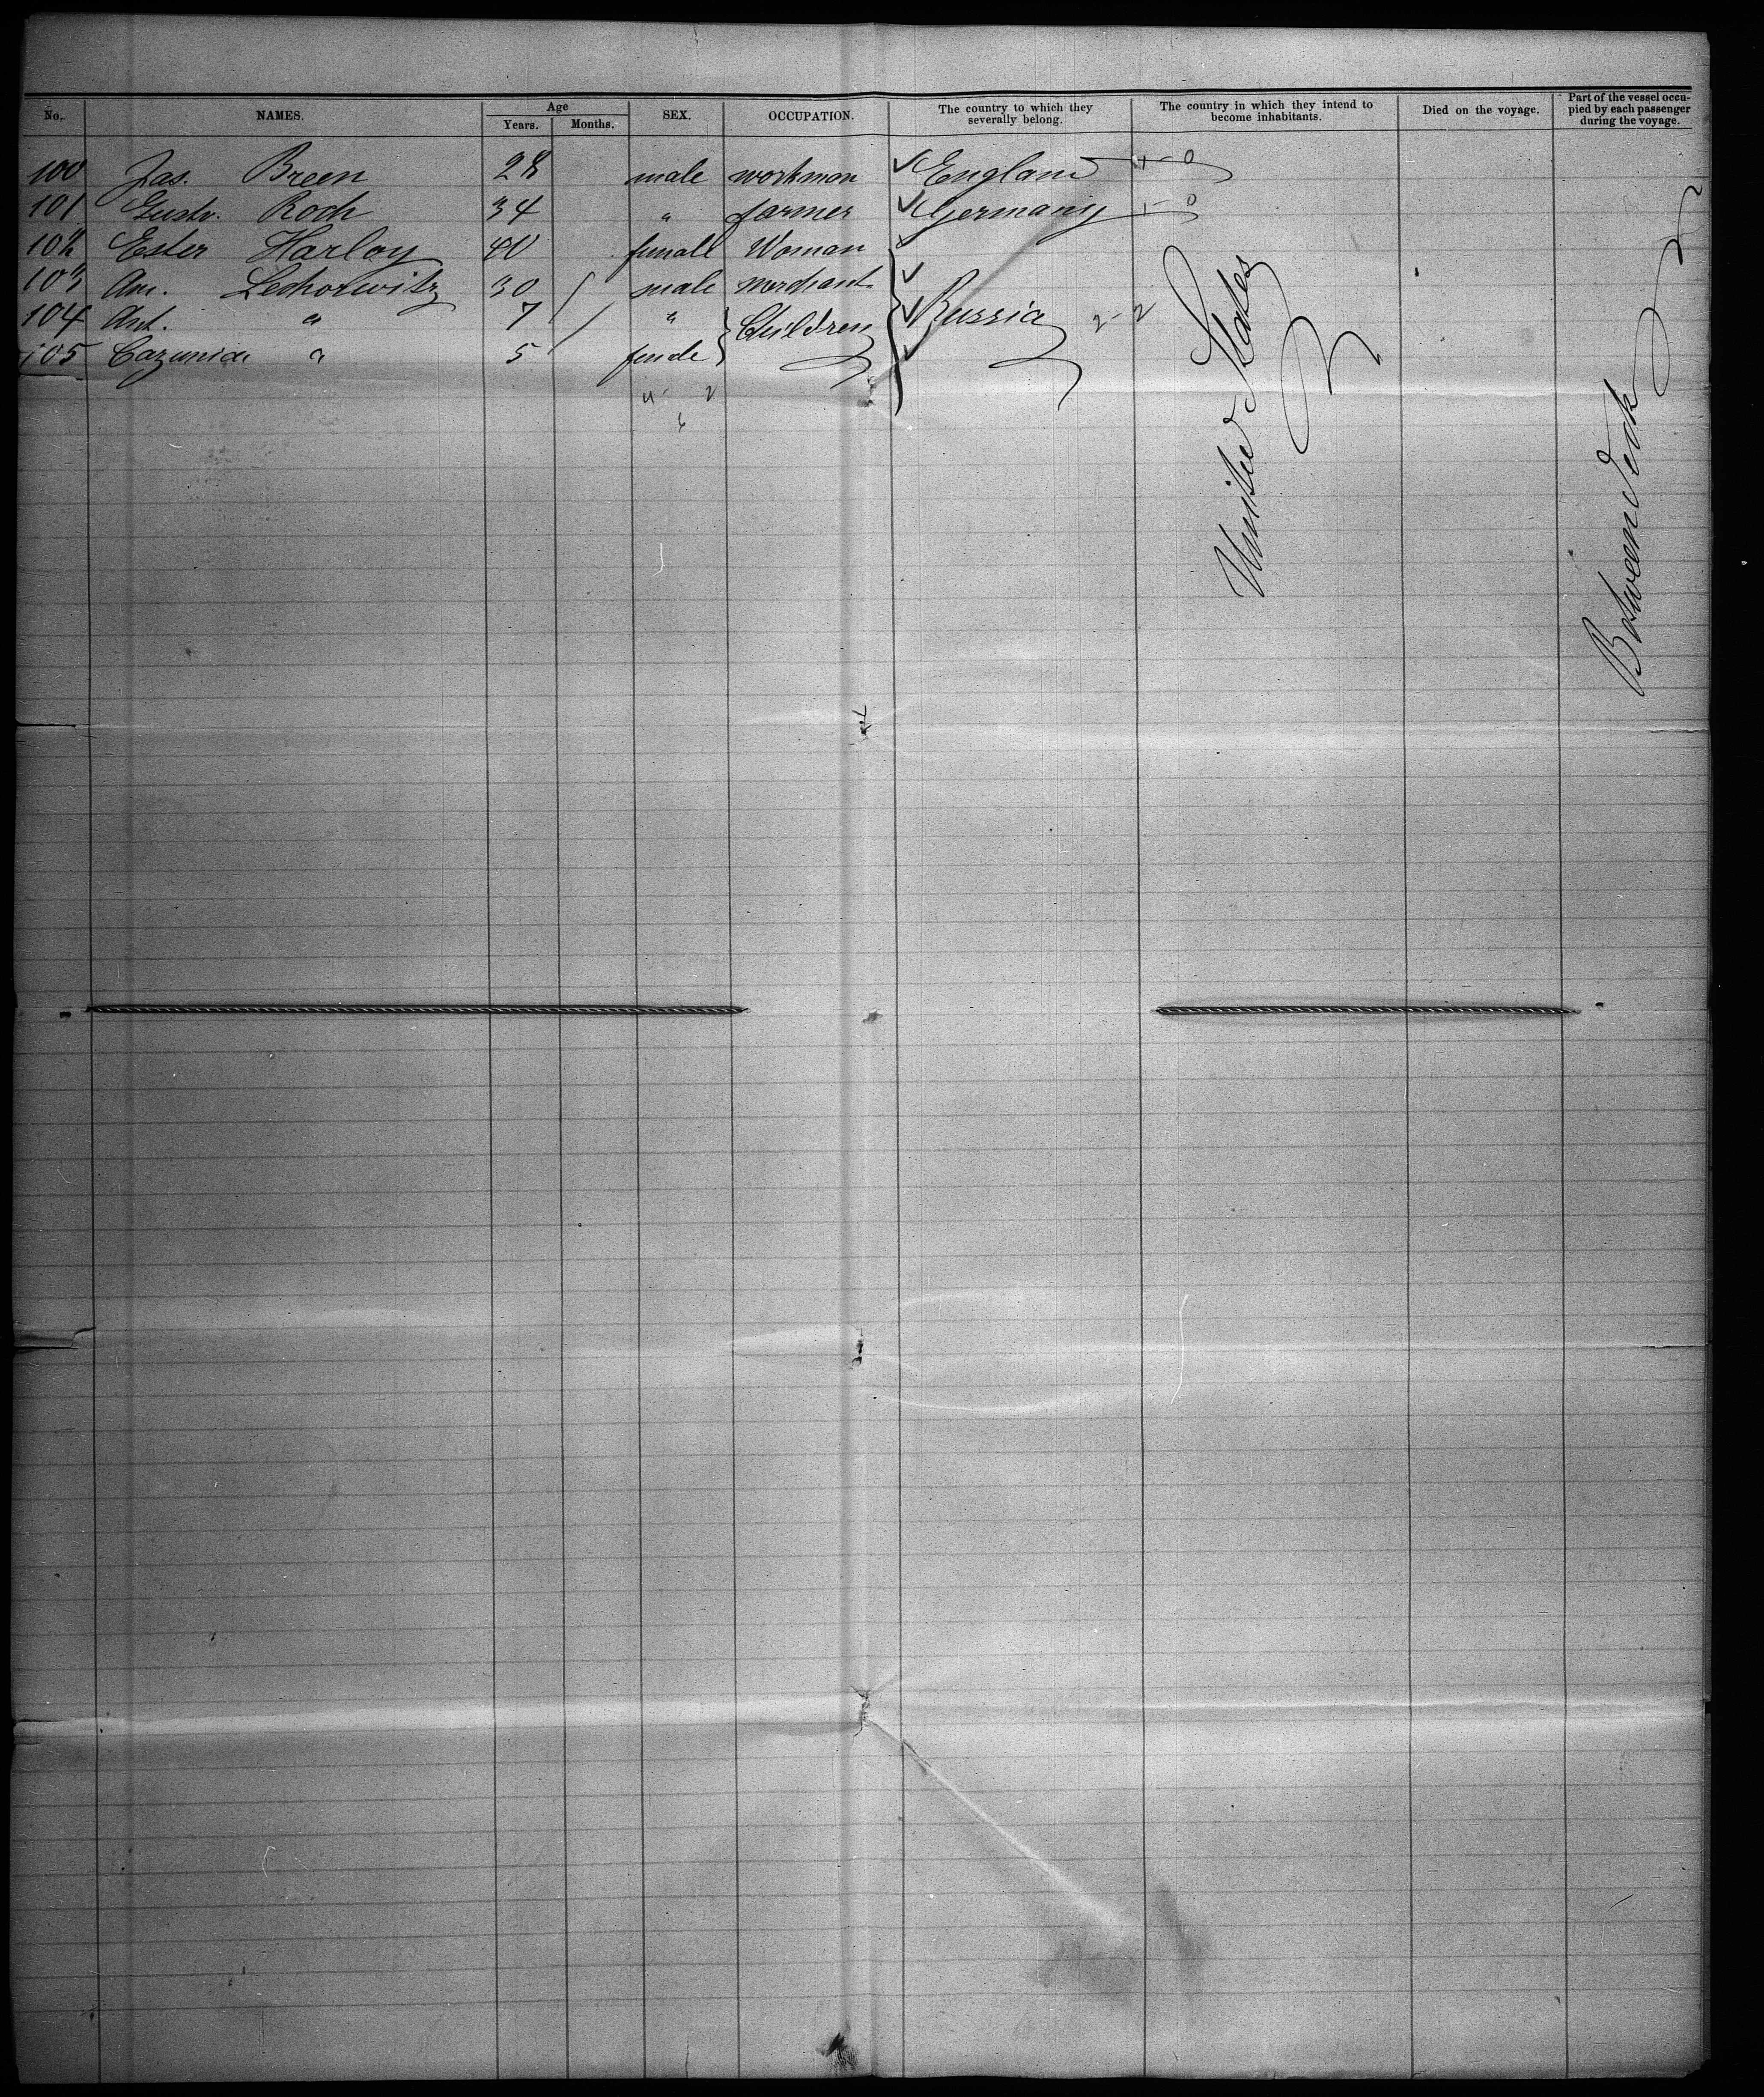 No. NAMES. Age Years. Months. SEX. OCCUPATION. The country to which they severally belong. The country in which they intend to become inhabitants. Died on the voyage. Part of the vessel occupied by each passenger during the voyage.
100 Jas. Breen 28 male workman ✓ England 1-0
101 Gustv. Koch 34 " farmer ✓ Germany 1-0
102 Ester Harloy 40 female Woman ✓
103 Am. Lechorwitz 30 / male merchant ✓
104 Ant. " 7 / " Children ✓ Russia 2-2
105 Cazunida " 5 female ✓
United States
Between deck
4- 2
6